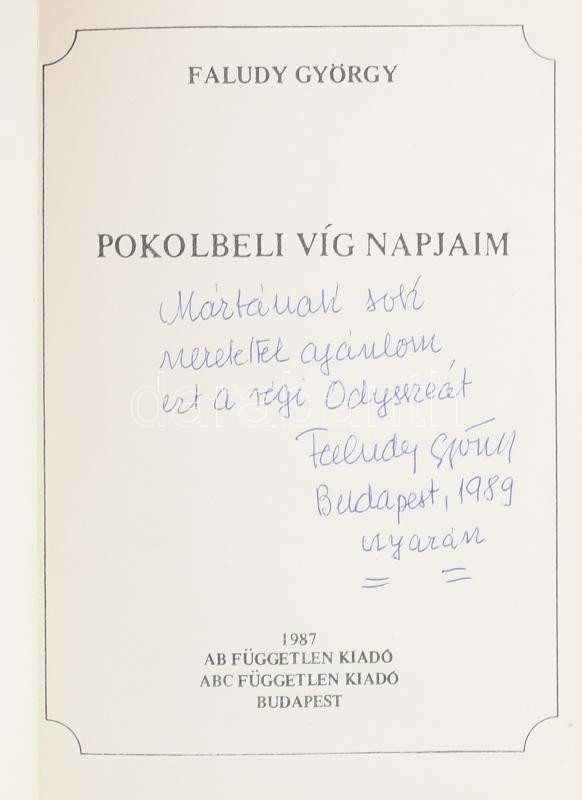 FALUDY GYÖRGY
POKOLBELI VÍG NAPJAIM
Mártának sok
szeretettel ajánlom
ezt a régi Odysszeát
darabanth
Faludy György
Budapest, 1989
nyarán
1987
AB FÜGGETLEN KIADÓ
ABC FÜGGETLEN KIADÓ
BUDAPEST